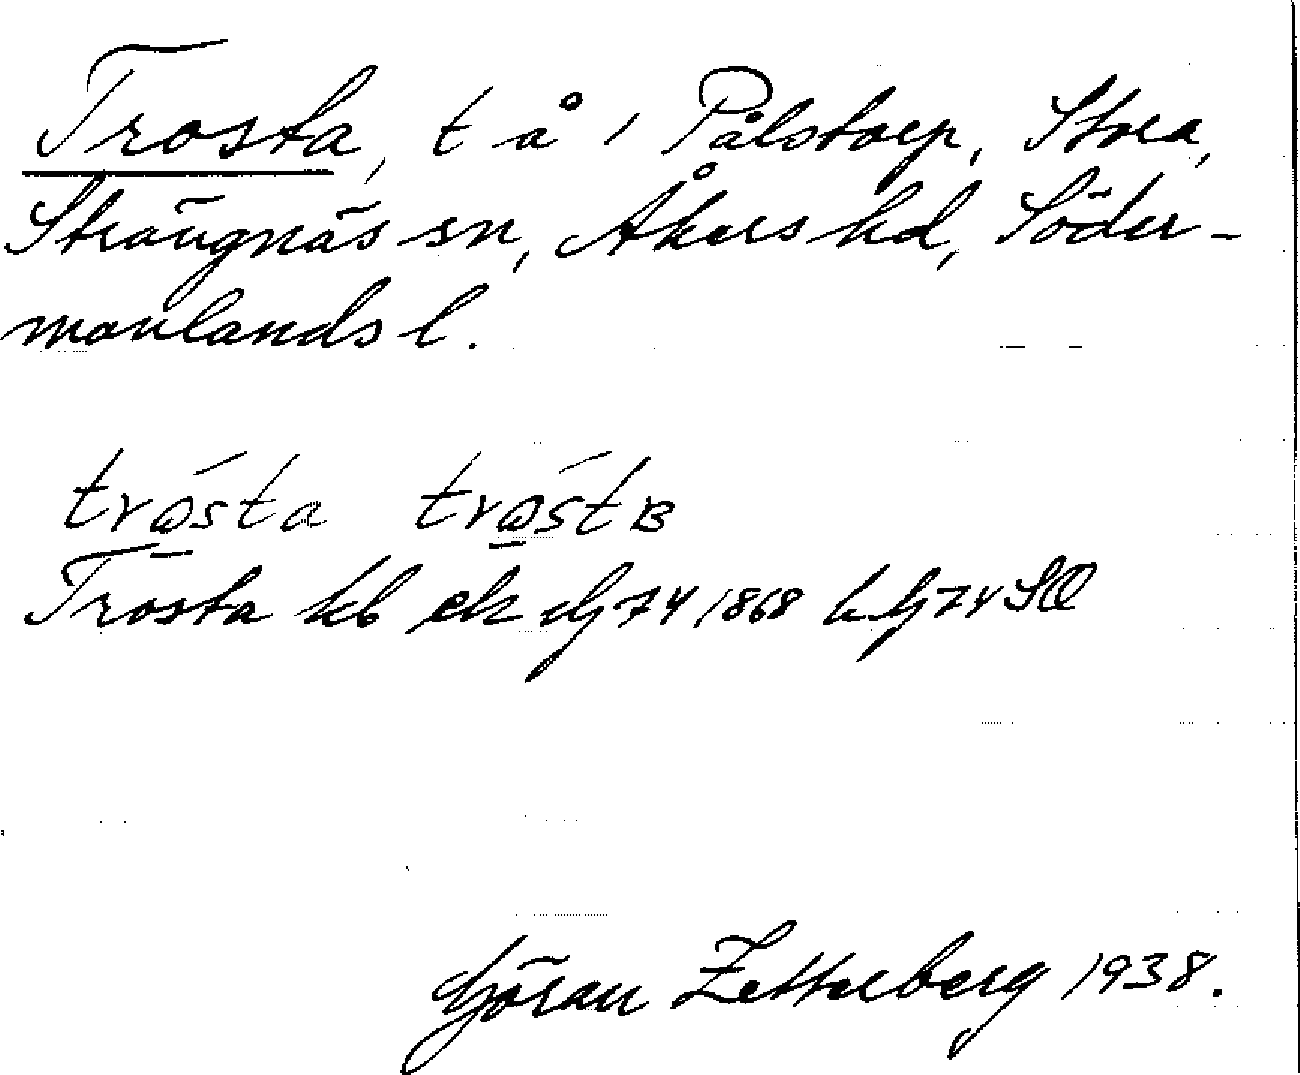 Trosta, t å i Pålstorp, Stora,
Strängnäs sn, Åkers hd, Söder-
manlands l.
tro̲sta tro̲stʙ
Trosta kb ek dG 74 1868 L G 74 SO
Göran Zetterberg 1938.